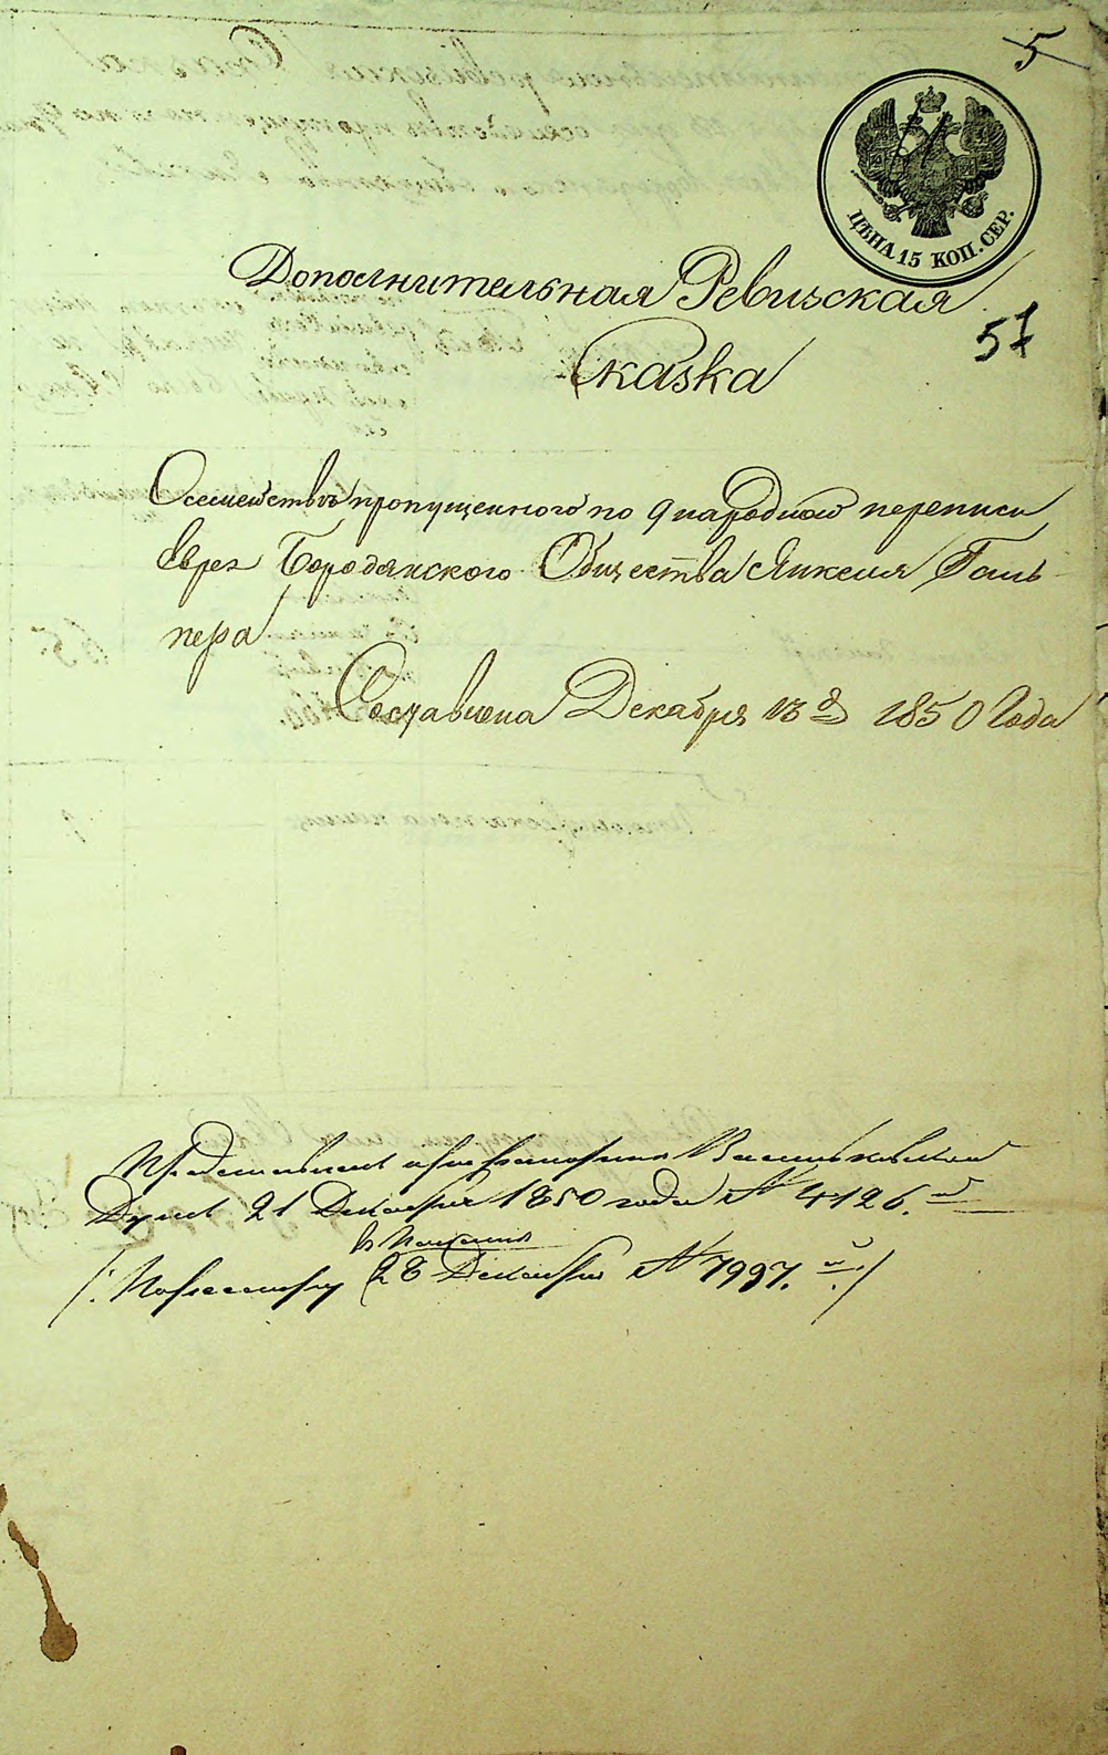 5
ЦѢНА 15 КОП. СЕР.
Дополнительная Ревизская
57
Сказка
О семействѣ пропущенного по 9 народной переписи
Еврея Бородянского Общества Янкеля Галь
пера
Составлена Декабря 13 д 1850 Года
Представлена при рапорте Васильковской
Думы 21 Декабря 1850 года № 4126.
28 Декабря № 7997.